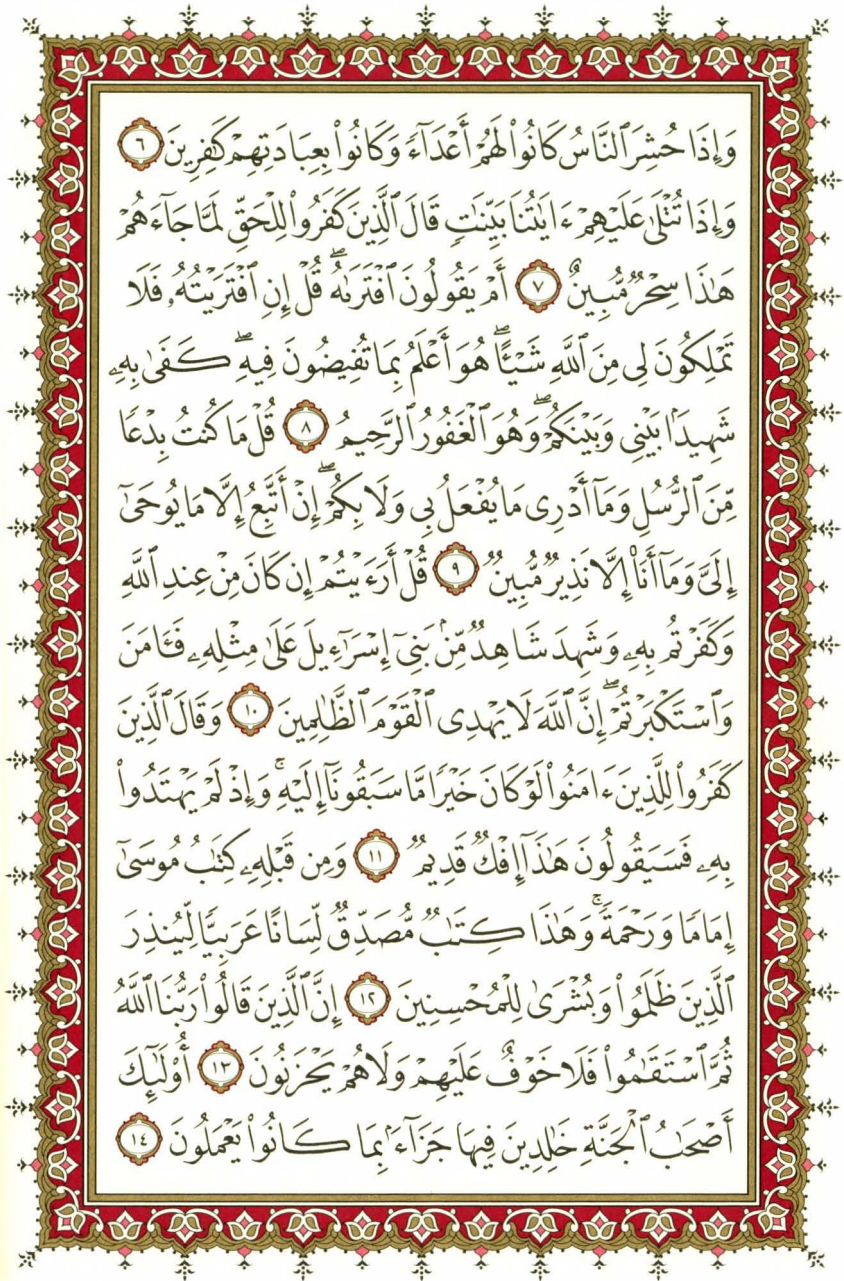 وَإِذَا حُشِرَ ٱلنَّاسُ كَانُوا۟ لَهُمْ أَعْدَآءً وَكَانُوا۟ بِعِبَادَتِهِمْ كَـٰفِرِينَ ٦
وَإِذَا تُتْلَىٰ عَلَيْهِمْ ءَايَـٰتُنَا بَيِّنَـٰتٍ قَالَ ٱلَّذِينَ كَفَرُوا۟ لِلْحَقِّ لَمَّا جَآءَهُمْ
هَـٰذَا سِحْرٌ مُّبِينٌ ٧ أَمْ يَقُولُونَ ٱفْتَرَىٰهُ ۖ قُلْ إِنِ ٱفْتَرَيْتُهُۥ فَلَا
تَمْلِكُونَ لِى مِنَ ٱللَّهِ شَيْـًٔا ۖ هُوَ أَعْلَمُ بِمَا تُفِيضُونَ فِيهِ ۖ كَفَىٰ بِهِۦ
شَهِيدًۢا بَيْنِى وَبَيْنَكُمْ ۖ وَهُوَ ٱلْغَفُورُ ٱلرَّحِيمُ ٨ قُلْ مَا كُنتُ بِدْعًا
مِّنَ ٱلرُّسُلِ وَمَآ أَدْرِى مَا يُفْعَلُ بِى وَلَا بِكُمْ ۖ إِنْ أَتَّبِعُ إِلَّا مَا يُوحَىٰٓ
إِلَىَّ وَمَآ أَنَا۠ إِلَّا نَذِيرٌ مُّبِينٌ ٩ قُلْ أَرَءَيْتُمْ إِن كَانَ مِنْ عِندِ ٱللَّهِ
وَكَفَرْتُم بِهِۦ وَشَهِدَ شَاهِدٌ مِّنۢ بَنِىٓ إِسْرَٰٓءِيلَ عَلَىٰ مِثْلِهِۦ فَـَٔامَنَ
وَٱسْتَكْبَرْتُمْ ۖ إِنَّ ٱللَّهَ لَا يَهْدِى ٱلْقَوْمَ ٱلظَّـٰلِمِينَ ١٠ وَقَالَ ٱلَّذِينَ
كَفَرُوا۟ لِلَّذِينَ ءَامَنُوا۟ لَوْ كَانَ خَيْرًا مَّا سَبَقُونَآ إِلَيْهِ ۚ وَإِذْ لَمْ يَهْتَدُوا۟
بِهِۦ فَسَيَقُولُونَ هَـٰذَآ إِفْكٌ قَدِيمٌ ١١ وَمِن قَبْلِهِۦ كِتَـٰبُ مُوسَىٰٓ
إِمَامًا وَرَحْمَةً ۚ وَهَـٰذَا كِتَـٰبٌ مُّصَدِّقٌ لِّسَانًا عَرَبِيًّا لِّيُنذِرَ
ٱلَّذِينَ ظَلَمُوا۟ وَبُشْرَىٰ لِلْمُحْسِنِينَ ١٢ إِنَّ ٱلَّذِينَ قَالُوا۟ رَبُّنَا ٱللَّهُ
ثُمَّ ٱسْتَقَـٰمُوا۟ فَلَا خَوْفٌ عَلَيْهِمْ وَلَا هُمْ يَحْزَنُونَ ١٣ أُو۟لَـٰٓئِكَ
أَصْحَـٰبُ ٱلْجَنَّةِ خَـٰلِدِينَ فِيهَا جَزَآءًۢ بِمَا كَانُوا۟ يَعْمَلُونَ ١٤